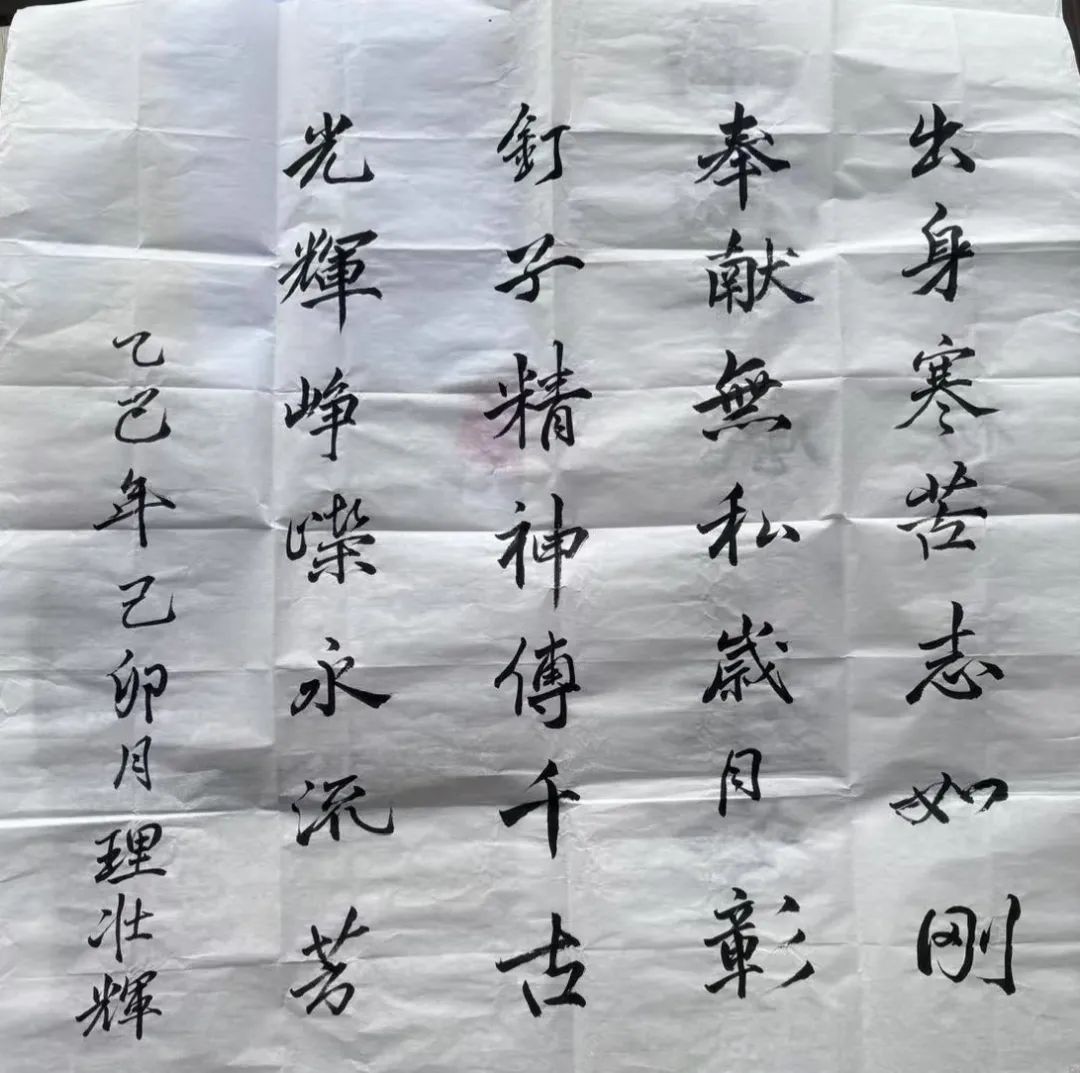 出身寒苦志如刚
奉献無私歲月彰
釘子精神傳千古
光輝崢嶸永流芳
乙巳年己卯月理壮輝